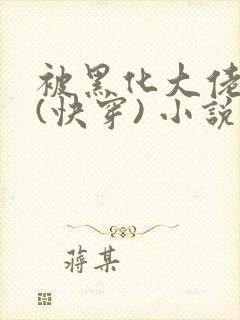 被黑化大佬
(快穿)小說
蔣某